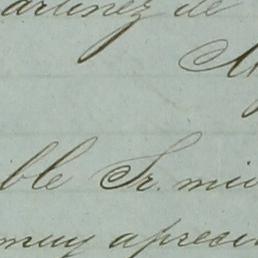 artinez de
M
ible Sr. mio
muy apreci